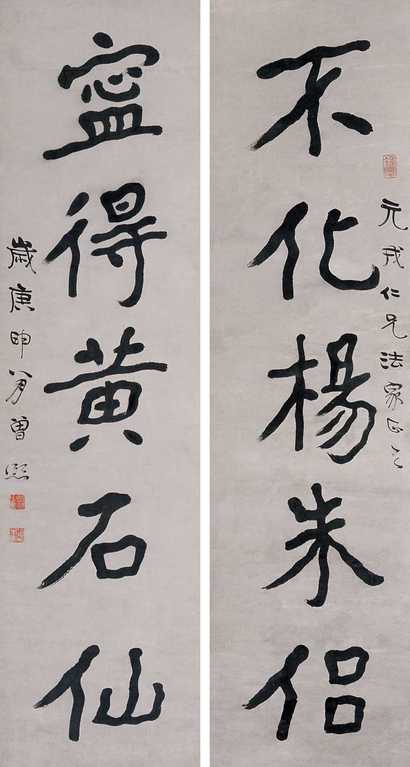 不化楊朱侣
元戎仁兄法家正之
寍得黄石仙
歲庚申八月曾熙